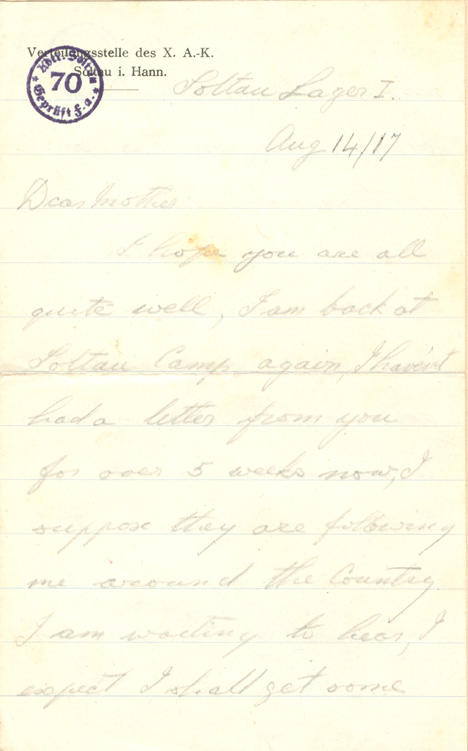 Verteilungsstelle des X. A.-K.
Soltau i. Hann.
70
Geprüft F.a.
Soltau Lager I.
Aug 14/17
Dear Mother
I hope you are all
quite well, I am back at
Soltau Camp again, I havent
had a letter from you
for over 5 weeks now, I
suppose they are following
me around the Country
I am waiting to hear, I
expect I shall get some